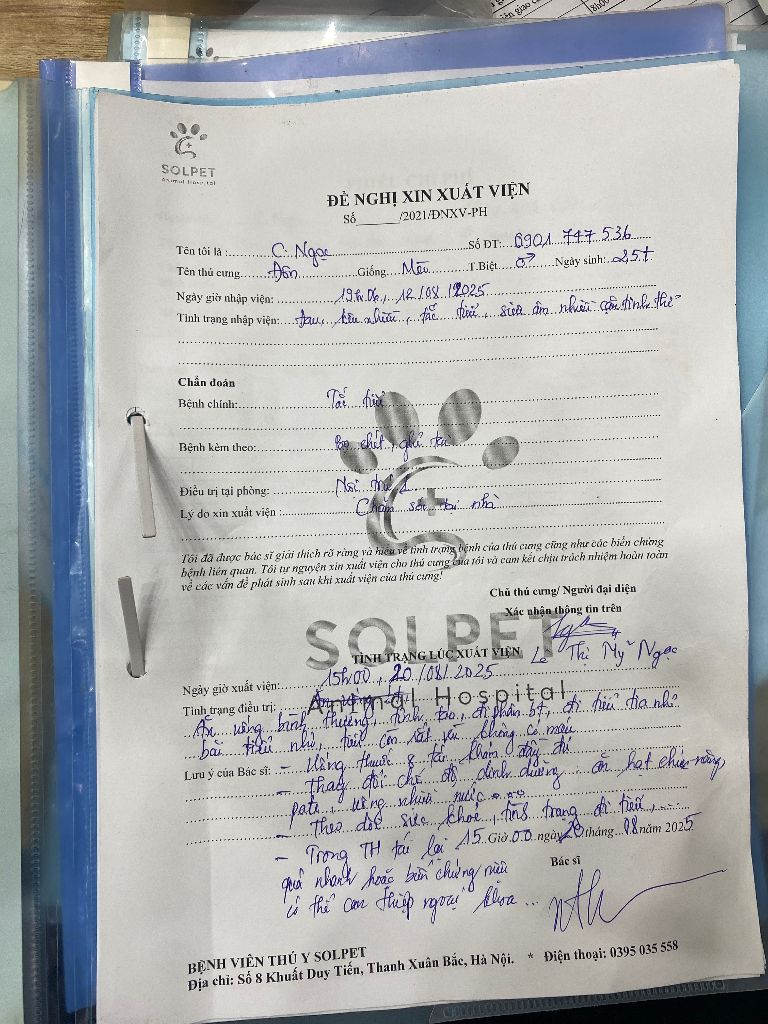 SOLPET
Animal Hospital
ĐỀ NGHỊ XIN XUẤT VIỆN
Số______/2021/ĐNXV-PH
Tên tôi là : C. Ngọc Số ĐT: 0901 747 536
Tên thú cưng Đôn Giống Mèo T.Biệt ♂ Ngày sinh: 25t
Ngày giờ nhập viện: 19h06, 12/08/2025
Tình trạng nhập viện: đau, kêu nhiều, tắc tiểu, siêu âm nhiều cặn tinh thể
Chẩn đoán
Bệnh chính: Tắc tiểu
Bệnh kèm theo: Bọ chét, ghẻ tai
Điều trị tại phòng: Nội trú 2
Lý do xin xuất viện : Chăm sóc tại nhà
Tôi đã được bác sĩ giải thích rõ ràng và hiểu về tình trạng bệnh của thú cưng cũng như các biến chứng
bệnh liên quan. Tôi tự nguyện xin xuất viện cho thú cưng của tôi và cam kết chịu trách nhiệm hoàn toàn
về các vấn đề phát sinh sau khi xuất viện của thú cưng!
Chủ thú cưng/ Người đại diện
Xác nhận thông tin trên
SOLPET
Animal Hospital
Lê Thị Mỹ Ngọc
TÌNH TRẠNG LÚC XUẤT VIỆN
Ngày giờ xuất viện: 15h00, 20/08/2025
Tình trạng điều trị:
Ăn uống bình thường, tỉnh táo, đi phân bt, đi tiểu tia nhỏ
bãi tiểu nhỏ, tiểu còn rắt và không có máu
Lưu ý của Bác sĩ: - Uống thuốc & tái khám đầy đủ
- Thay đổi chế độ dinh dưỡng ăn hạt chức năng,
pate, uống nhiều nước
- Theo dõi sức khỏe, tình trạng đi tiểu, ...
- Trong TH tái lại 15 Giờ 00 ngày 20 tháng 08 năm 2025
quá nhanh hoặc biến chứng niệu
có thể can thiệp ngoại khoa ...
Bác sĩ
BỆNH VIỆN THÚ Y SOLPET
Địa chỉ: Số 8 Khuất Duy Tiến, Thanh Xuân Bắc, Hà Nội. * Điện thoại: 0395 035 558